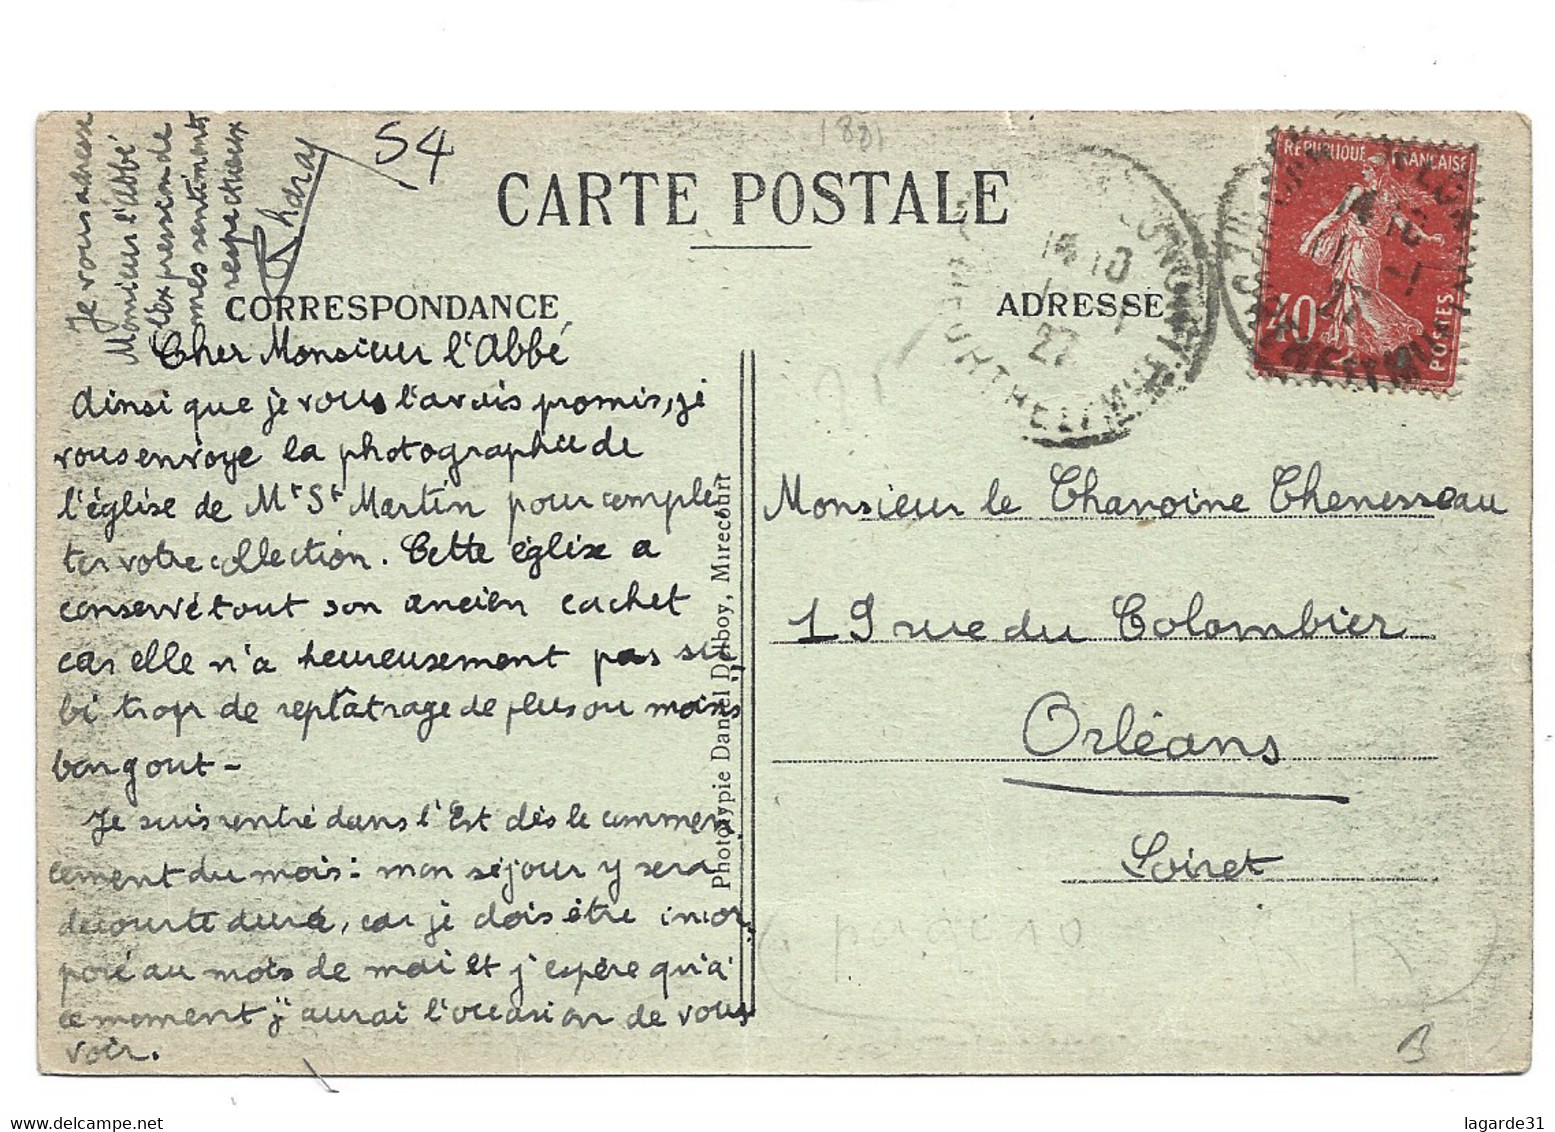 54
1881
CARTE POSTALE
CORRESPONDANCE
ADRESSE
REPUBLIQUE FRANÇAISE
40
POSTES
LONGUYON
MRTHE-ET-M
14 10
1
27
Cher Monsieur l'Abbé
Ainsi que je vous l'avais promis, je
vous envoye la photographie de
l'église de Mt St Martin pour complé
ter votre collection. Cette église a
conservé tout son ancien cachet
car elle n'a heureusement pas su
bi trop de replâtrage de plus ou moins
bon gout -
Je suis rentré dans l'Est dès le commen
cement du mois : mon séjour y sera
de courte durée, car je dois être incor
poré au mois de mai et j'espère qu'à
ce moment j'aurai l'occasion de vous
voir.
Je vous adresse
Monsieur l'abbé
l'expression de
mes sentiments
respectueux
Phototypie Daniel Delboy, Mirecourt
Monsieur le Chanoine Chenesseau
19 rue du Colombier
Orléans
Loiret
lagarde31